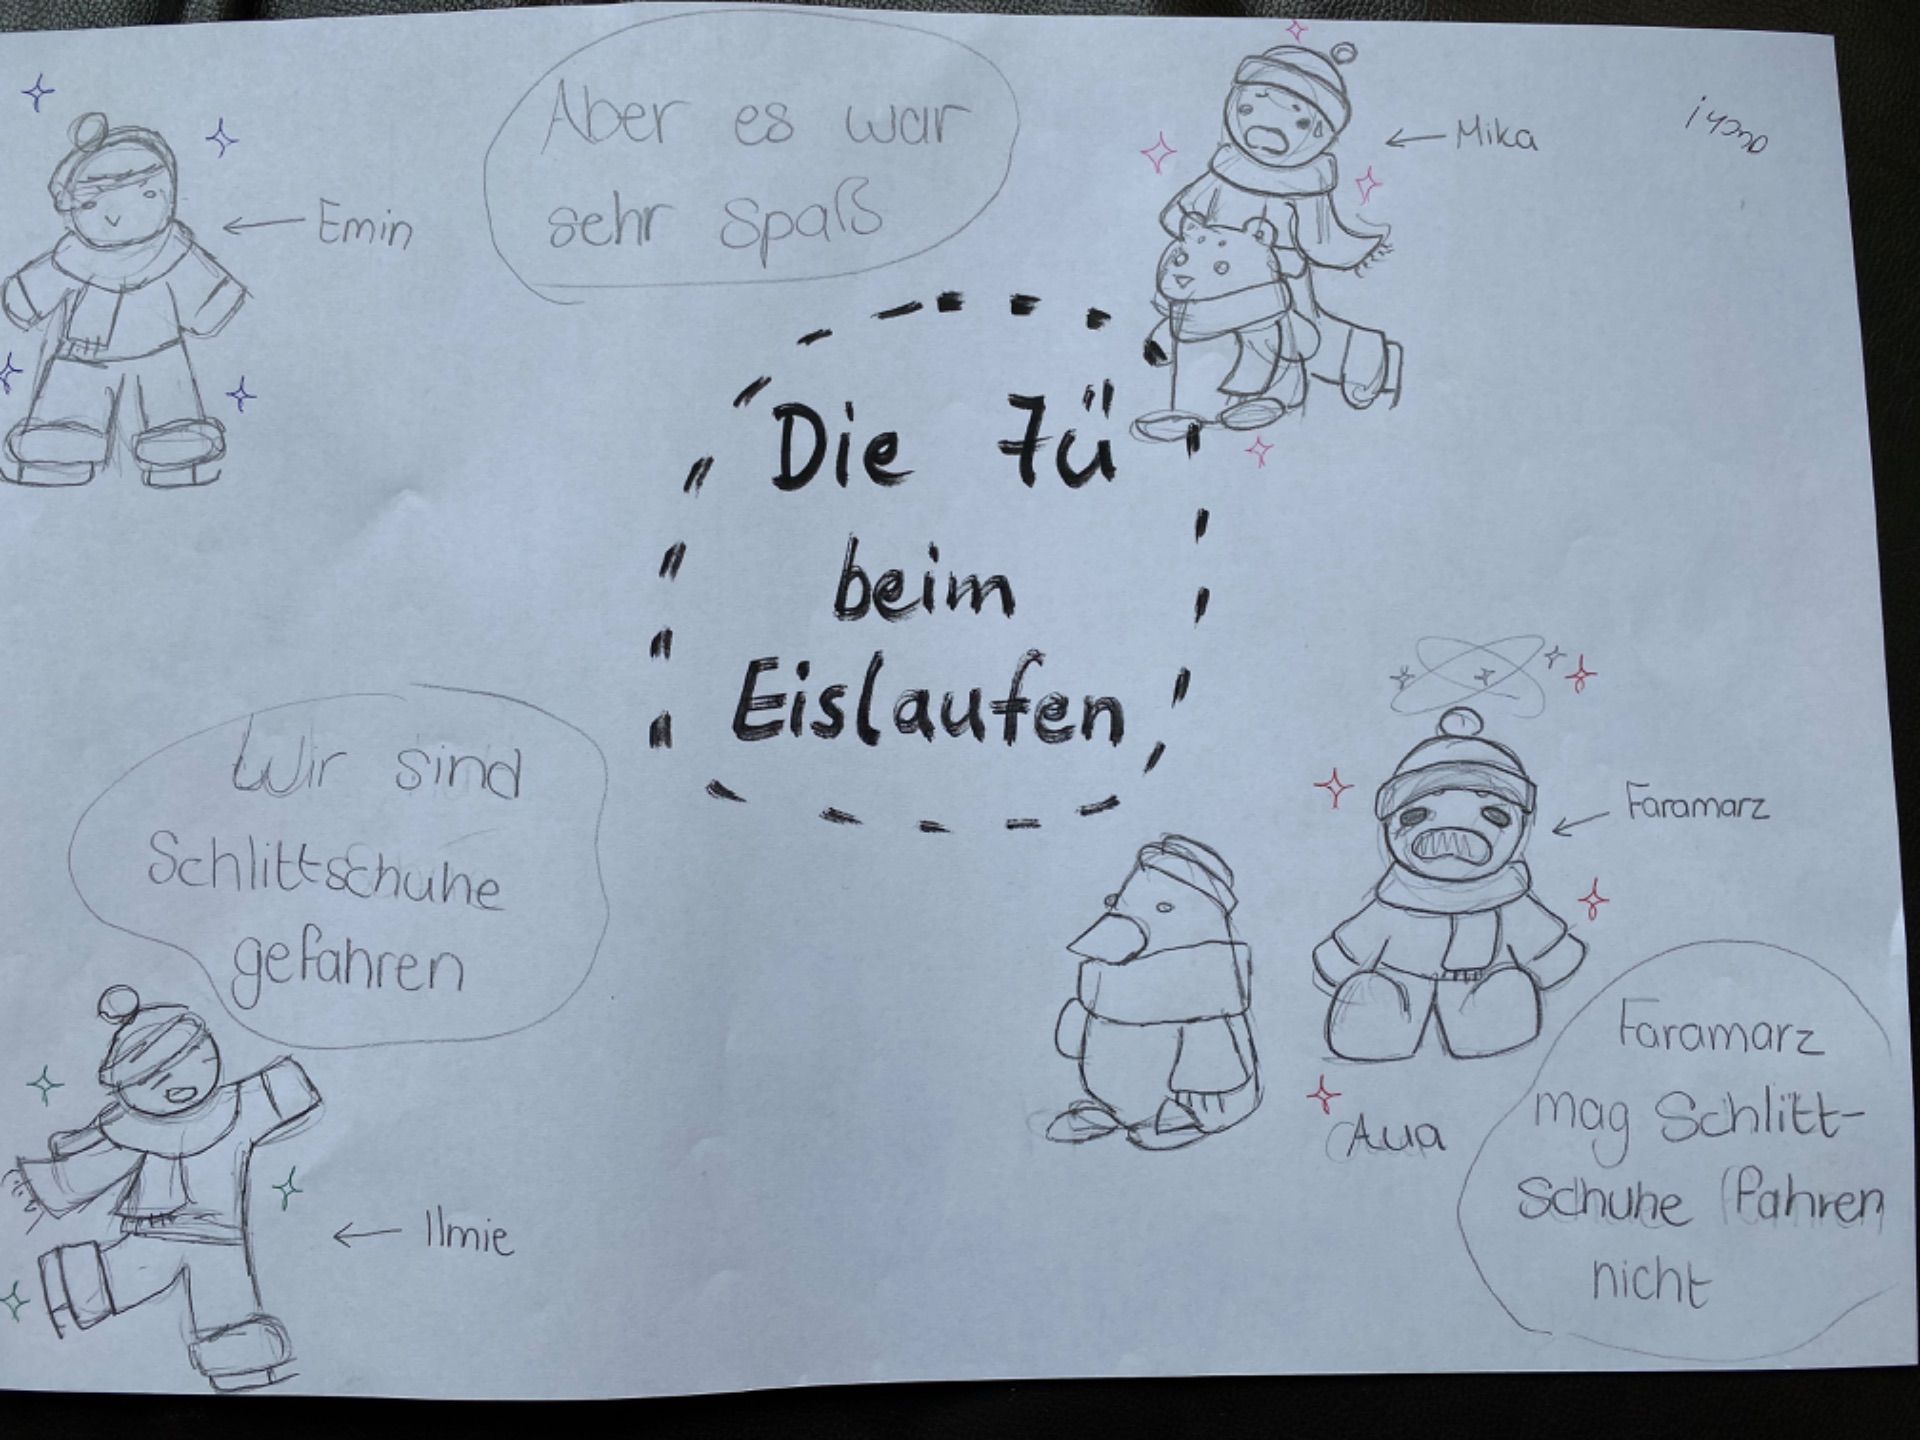 Aber es war
sehr Spaß
Mika
auch!
Emin
Die 7ü
beim
Eislaufen
Wir sind
Schlittschuhe
gefahren
Faramarz
Faramarz
mag Schlitt-
Schuhe fahren
nicht
Aua
Ilmie